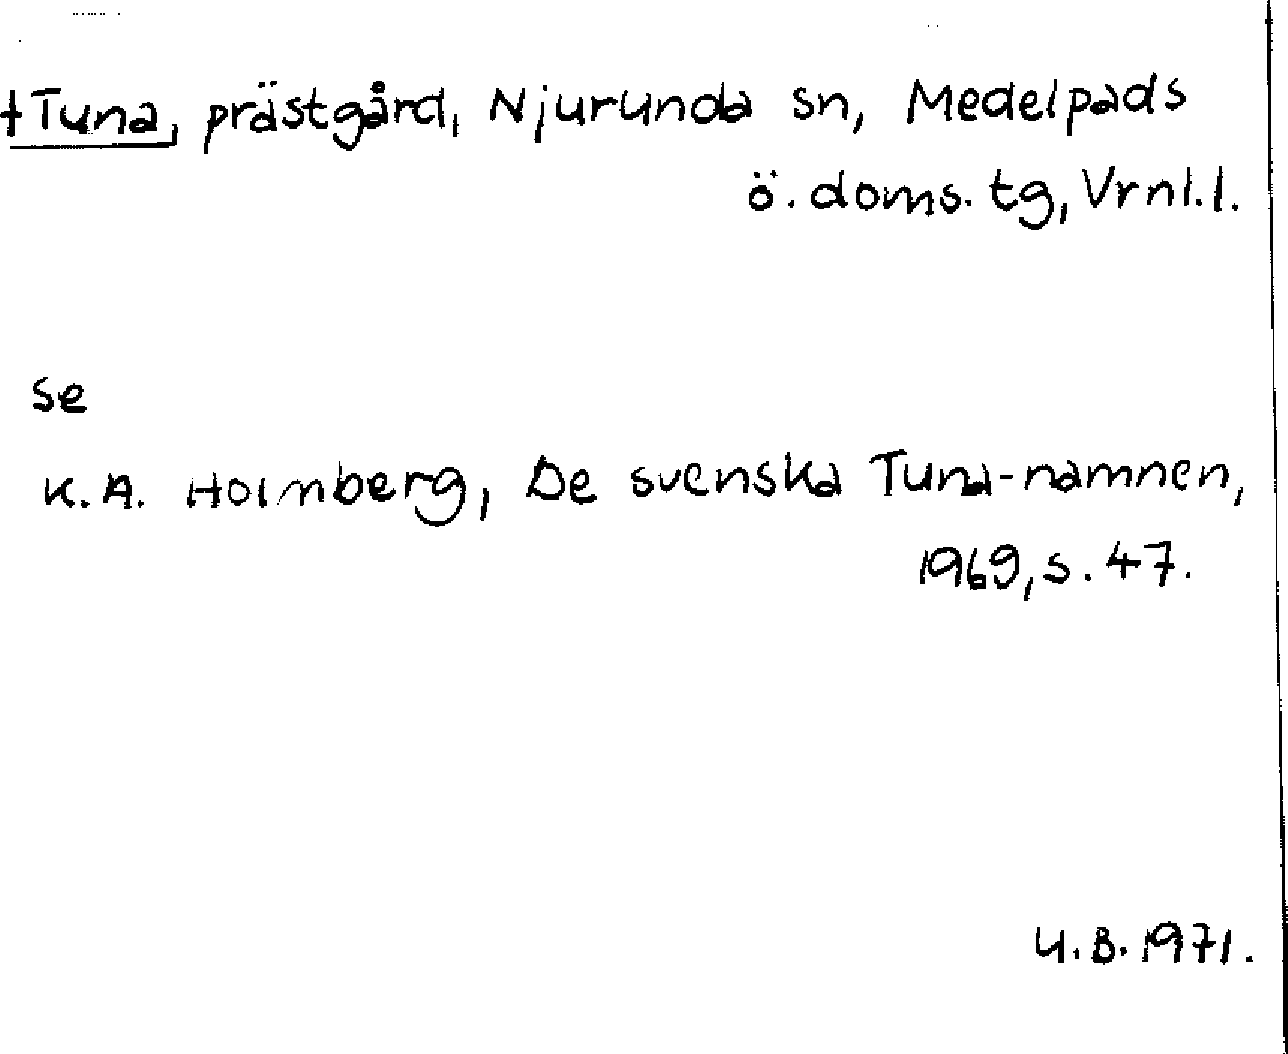 †Tuna, prästgård, Njurunda sn, Medelpads
ö. doms. tg, Vrnl. l.
se
K.A. Holmberg, De svenska Tuna-namnen,
1969, s. 47.
U.B. 1971.